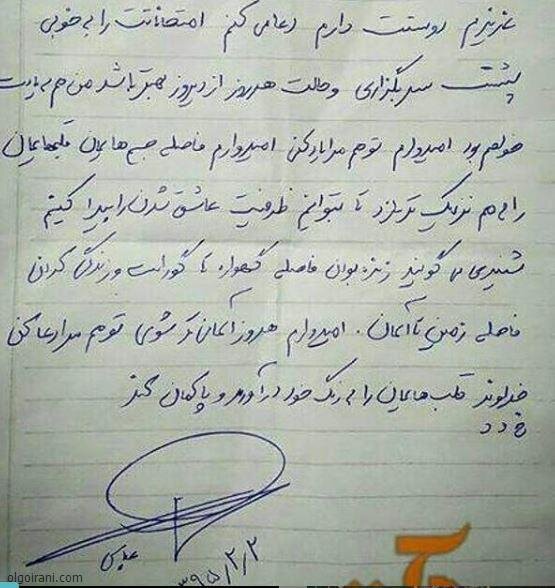 عزیزم دوستت دارم دعا می کنم امتحاناتت را به خوبی
پشت سر بگزاری و حالت هر روز از دیروز بهتر باشد من هم به یادت
خواهم بود امیدوارم تو هم مرا یاد کنی امیدوارم فاصله جسم هایمان قلبهایمان
را به هم نزدیک تر سازد تا بتوانیم ظرفیت عاشق شدن را پیدا کنیم
شنیدی می گویند زنده بودن فاصله گهواره تا گور است و زندگی کردن
فاصله زمین تا آسمان . امیدوارم هر روز آسمانی تر شوی تو هم مرا دعا کن
خداوند قلب هایمان را به رنگ خود در آورد و پاکمان کند
عباس
۱۳۹۵/۲/۲
olgoirani.com